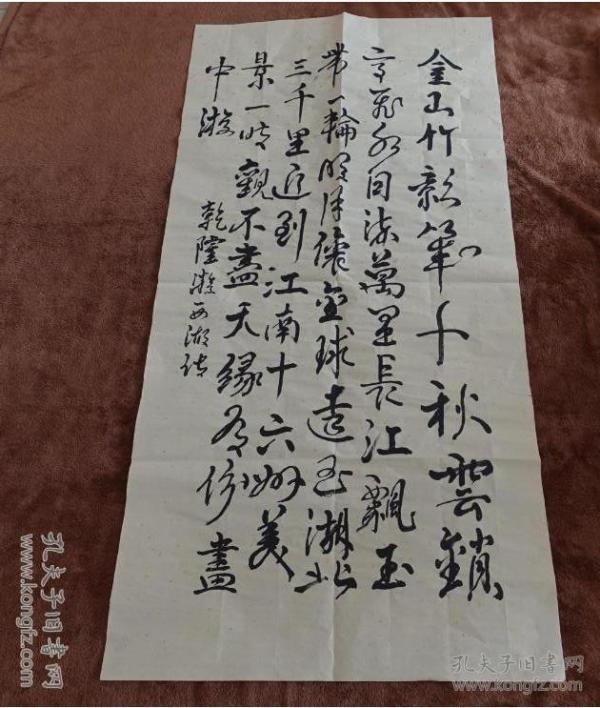 金山竹影千秋雲鎖
高飛水同流萬里長江飄玉
帶一輪明月金球遠至湖北
三千里近到江南十六州美
景一時觀不盡天緣有份畫
中游
乾隆游西湖诗
孔夫子旧书网
www.kongfz.com
孔夫子旧书网
www.kongfz.com